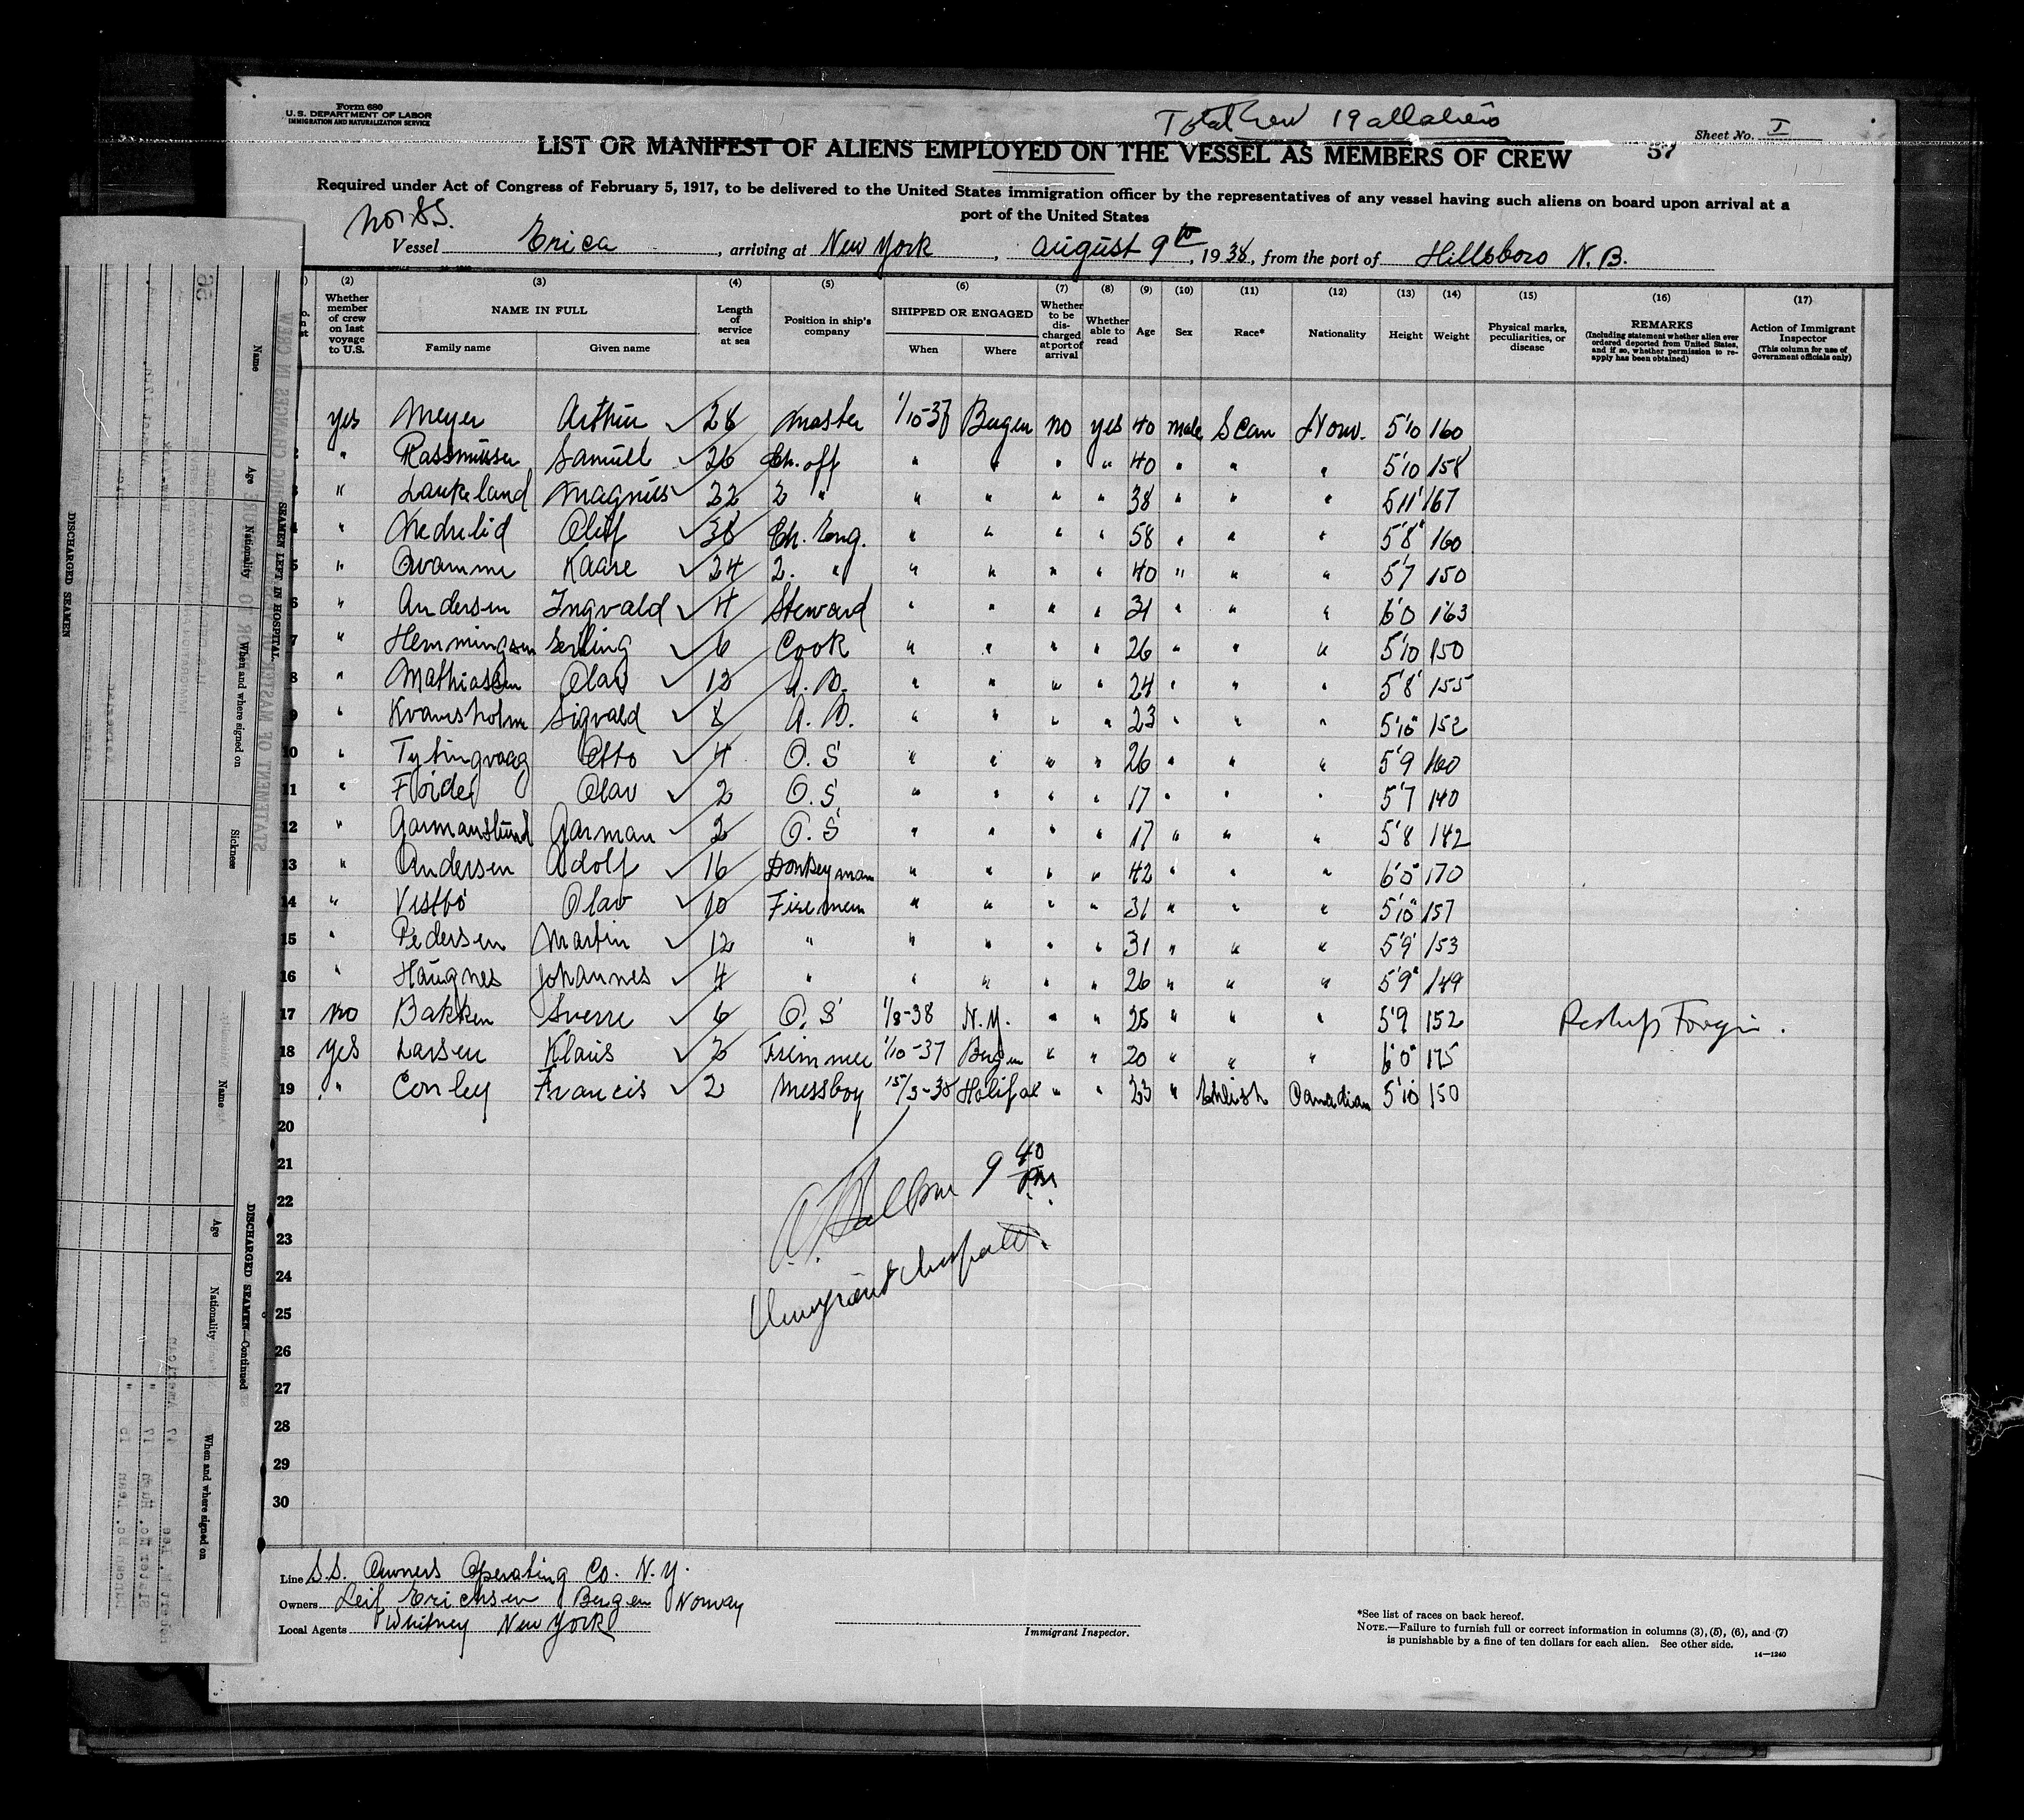 Form 680
U.S. DEPARTMENT OF LABOR
IMMIGRATION AND NATURALIZATION SERVICE
Total Crew 19 all aliens
Sheet No. I
LIST OR MANIFEST OF ALIENS EMPLOYED ON THE VESSEL AS MEMBERS OF CREW
57
Required under Act of Congress of February 5, 1917, to be delivered to the United States immigration officer by the representatives of any vessel having such aliens on board upon arrival at a
port of the United States
Nor. SS.
Vessel Erica, arriving at New York, August 9th, 1938, from the port of Hillsboro N.B.
(2) (3) (4) (5) (6) (7) (8) (9) (10) (11) (12) (13) (14) (15) (16) (17)
Whether member of crew on last voyage to U.S.
NAME IN FULL
Family name Given name
Length of service at sea
Position in ship's company
SHIPPED OR ENGAGED
When Where
Whether to be discharged at port of arrival
Whether able to read
Age
Sex
Race*
Nationality
Height
Weight
Physical marks, peculiarities, or disease
REMARKS
(Including statement whether alien ever ordered deported from United States, and if so, whether permission to reapply has been obtained)
Action of Immigrant Inspector
(This column for use of Government officials only)
yes Meyer Arthur 28 Master 1/10-37 Bergen no yes 40 male Scan Norw. 5'10 160
2 " Rassmussen Samuel 26 Ch. off " " " " 40 " " " 5'10 158
3 " Laukeland Magnus 22 2 " " " " " 38 " " " 5'11 167
4 " Nedrelid Oluf 38 Ch. Eng. " " " " 58 " " " 5'8" 160
5 " Qvamme Kaare 24 2. " " " " " 40 " " " 5'7 150
6 " Andersen Ingvald 4 Steward " " " " 31 " " " 6'0 163
7 " Hemmingsen Serling 6 Cook " " " " 26 " " " 5'10 150
8 " Mathiassen Olav 12 A.B. " " " " 24 " " " 5'8' 155
9 " Kvamsholm Sigvald 8 A.B. " " " " 23 " " " 5'10" 152
10 " Tytingvaag Otto 4 O.S " " " " 26 " " " 5'9 160
11 " Flördei Olav 2 O.S. " " " " 17 " " " 5'7 140
12 " Garmanslund Garman 2 O.S " " " " 17 " " " 5'8 142
13 " Andersen Adolf 16 Donkeyman " " " " 42 " " " 6'0" 170
14 " Vestbö Olav 10 Firemen " " " " 31 " " " 5'10" 157
15 " Pedersen Martin 12 " " " " " 31 " " " 5'9' 153
16 " Haugnes Johannes 4 " " " " " 26 " " " 5'9" 149
17 no Bakken Sverre 6 O.S 1/8-38 N.Y. " " 25 " " " 5'9 152 Reship Foreign.
18 yes Larsen Klaus 2 1/10-37 Bergen " " 20 " " " 6'0" 175
19 " Conley Francis 2 Messboy 15/3-38 Halifax " " 23 " Canadian 5'10 150
20
21
22
23
24
25
26
27
28
29
30
9 40 PM
Immigrant Inspector
Line S.S. Owners Operating Co. N.Y.
Owners Leif Erichsen Bergen Norway
Local Agents Whitney New York
Immigrant Inspector.
*See list of races on back hereof.
NOTE.—Failure to furnish full or correct information in columns (3), (5), (6), and (7)
is punishable by a fine of ten dollars for each alien. See other side.
14—1240
SEAMEN LEFT IN HOSPITAL
Name Age Nationality When and where signed on Sickness
DISCHARGED SEAMEN
DISCHARGED SEAMEN—Continued
Name Age Nationality When and where signed on